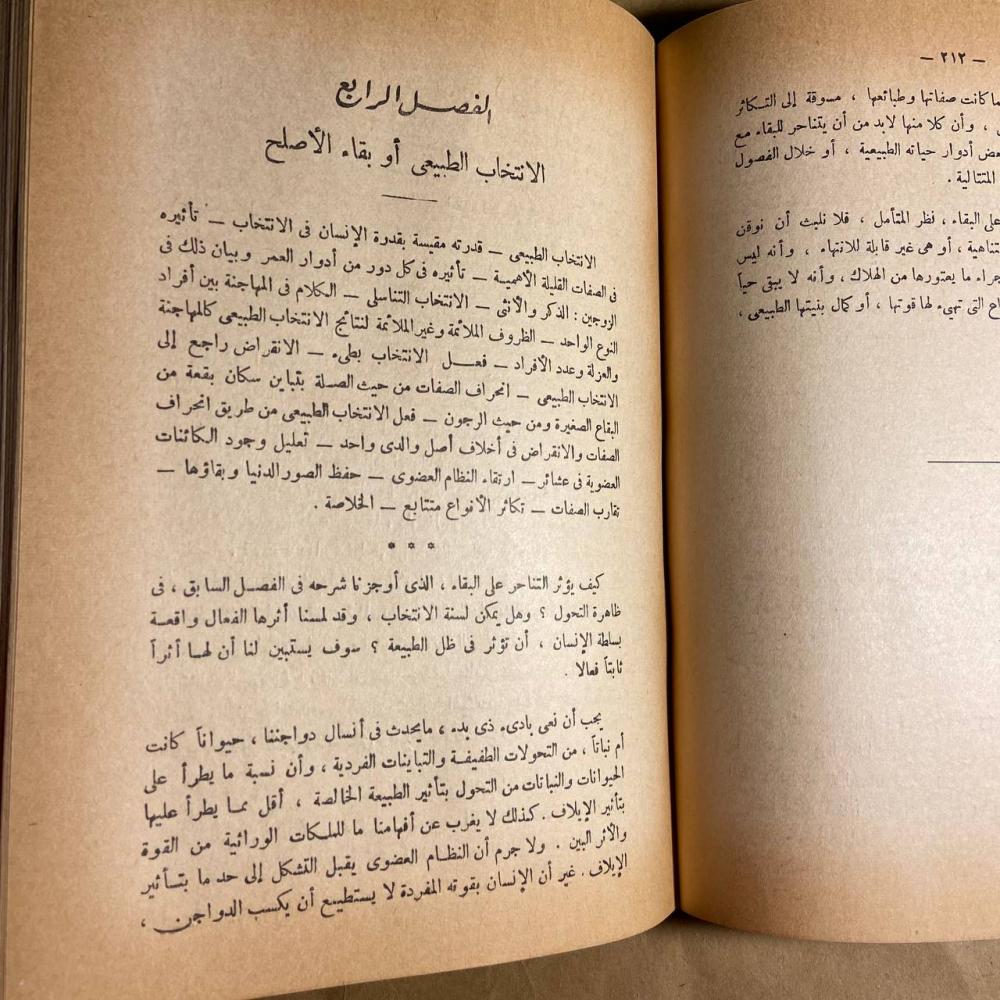 — ٢١٢ —
ما كانت صفاتها وطبائعها ، مسوقة إلى التكاثر
، وأن كلا منها لابد من أن يتناحر للبقاء مع
بعض أدوار حياته الطبيعية ، أو خلال الفصول
المتتالية .
على البقاء ، نظر المتأمل ، فلا نلبث أن نوقن
متناهية ، أو هى غير قابلة للانتهاء ، وأنه ليس
جراء ما يعتورها من الهلاك ، وأنه لا يبقى حياً
التى تهيء لها قوتها ، أو كمال بنيتها الطبيعى ،
الفصل الرابع
الانتخاب الطبيعى أو بقاء الأصلح
الانتخاب الطبيعى — قدرته مقيسة بقدرة الإنسان فى الانتخاب — تأثيره
فى الصفات القليلة الأهمية — تأثيره فى كل دور من أدوار العمر وبيان ذلك فى
الزوجين : الذكر والأنثى — الانتخاب التناسلى — الكلام فى المهاجنة بين أفراد
النوع الواحد — الظروف الملائمة وغير الملائمة لنتائج الانتخاب الطبيعى كالمهاجنة
والعزلة وعدد الأفراد — فعل الانتخاب بطىء — الانقراض راجع إلى
الانتخاب الطبيعى — انحراف الصفات من حيث الصلة بتباين سكان بقعة من
البقاع الصغيرة ومن حيث الرجون — فعل الانتخاب الطبيعى من طريق انحراف
الصفات والانقراض فى أخلاف أصل والدى واحد — تعليل وجود الكائنات
العضوية فى عشائر — ارتقاء النظام العضوى — حفظ الصور الدنيا وبقاؤها —
تقارب الصفات — تكاثر الأنواع متتابع — الخلاصة .
* * *
كيف يؤثر التناحر على البقاء ، الذى أوجزنا شرحه فى الفصل السابق ، فى
ظاهرة التحول ؟ وهل يمكن لسنة الانتخاب ، وقد لمسنا أثرها الفعال واقعة
بسلطة الإنسان ، أن تؤثر فى ظل الطبيعة ؟ سوف يستبين لنا أن لها أثراً
ثابتاً فعالا .
يجب أن نعى بادىء ذى بدء ، ما يحدث فى أنسال دواجننا ، حيواناً كانت
أم نباتاً ، من التحولات الطفيفة والتباينات الفردية ، وأن نسبة ما يطرأ على
الحيوانات والنباتات من التحول بتأثير الطبيعة الخالصة ، أقل مما يطرأ عليها
بتأثير الإيلاف . كذلك لا يغرب عن أفهامنا ما للملكات الوراثية من القوة
والأثر البين . ولا جرم أن النظام العضوى يقبل التشكل إلى حد ما بتأثير
الإيلاف . غير أن الإنسان بقوته المفردة لا يستطيع أن يكسب الدواجن ،